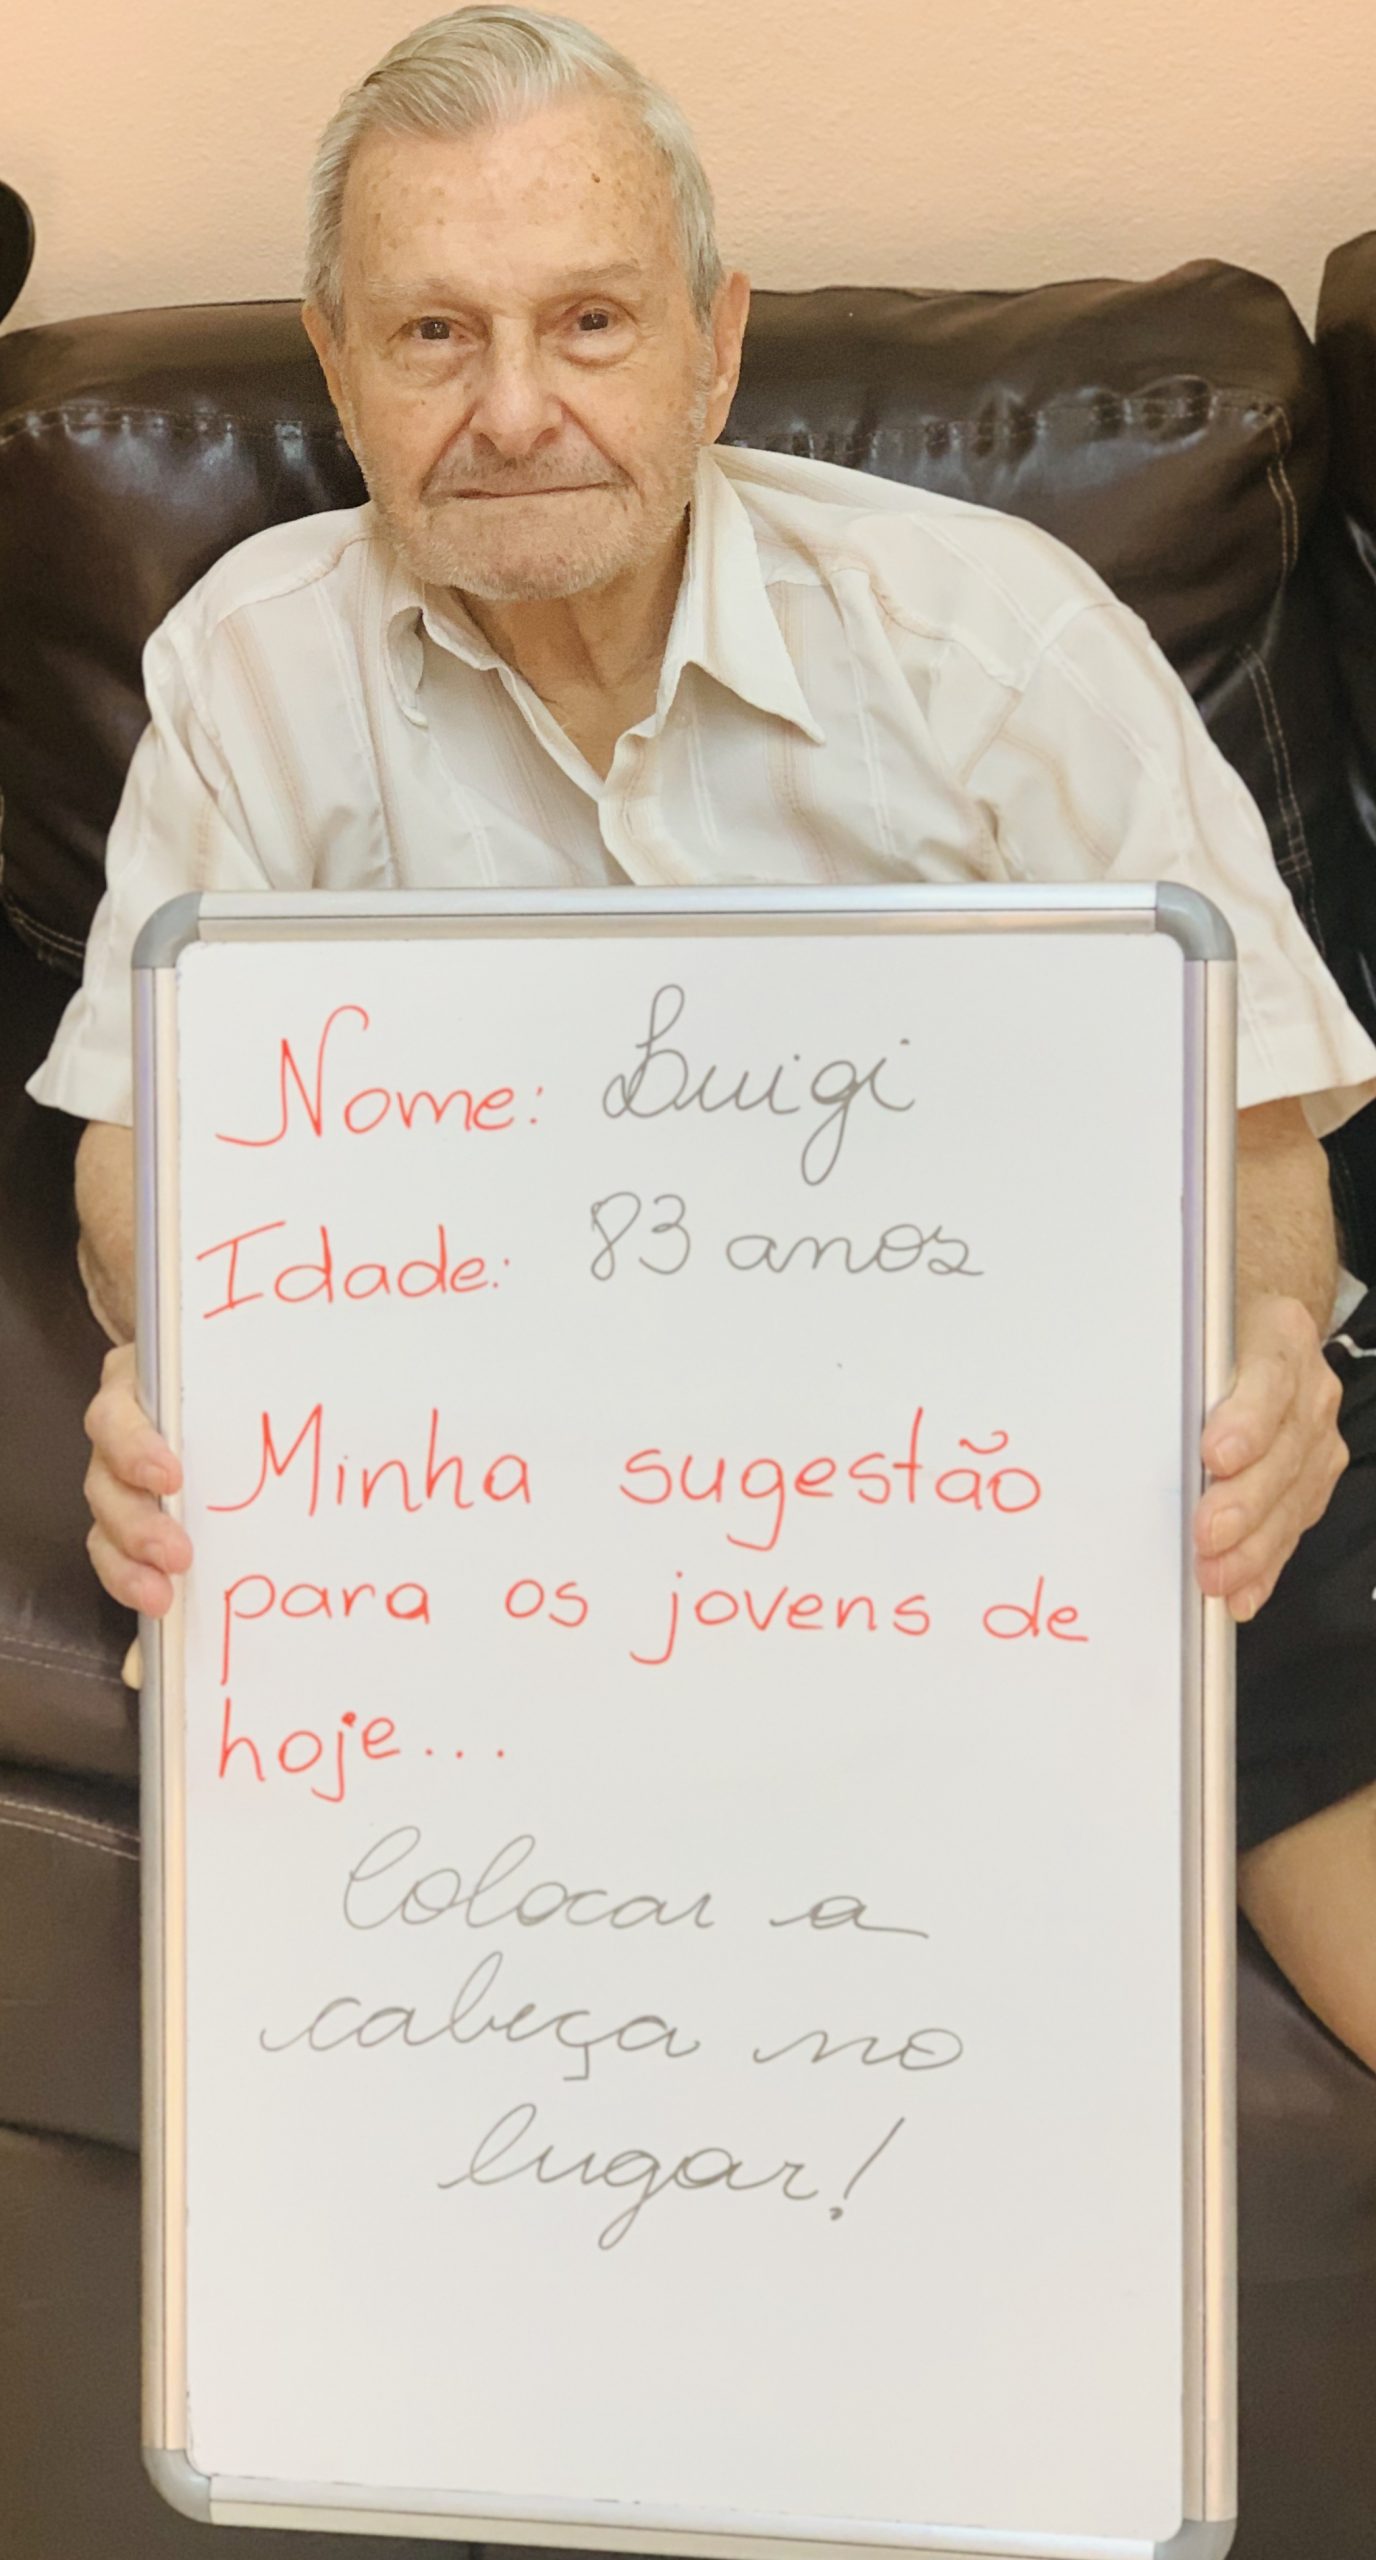 Nome: Luigi
Idade: 83 anos
Minha sugestão
para os jovens de
hoje...
Colocar a
cabeça no
lugar!